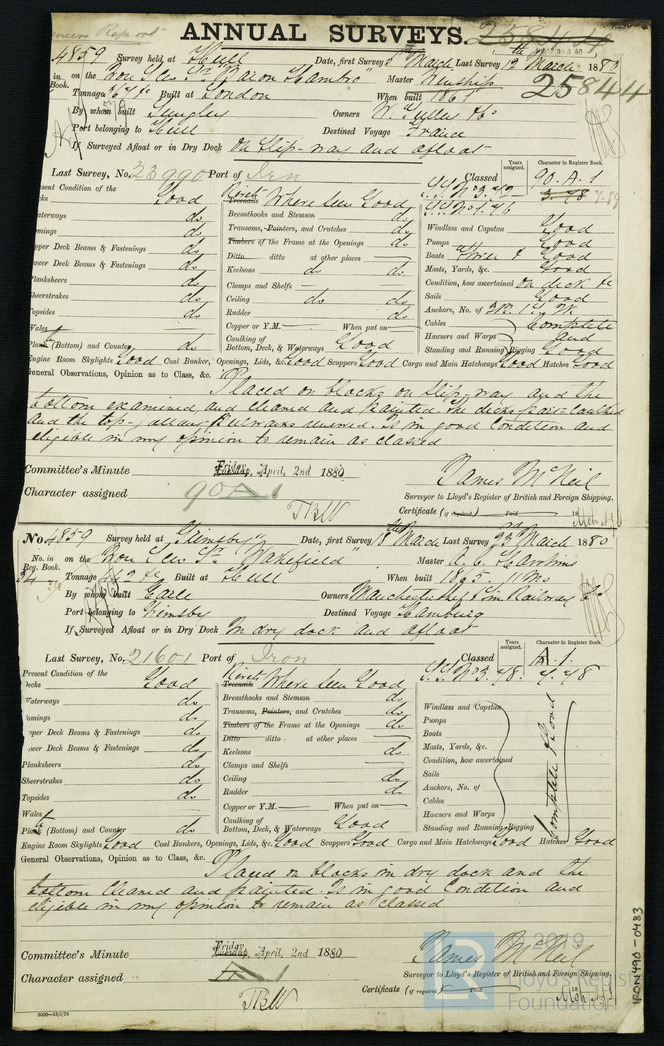 ANNUAL SURVEYS.
4859 Survey held at Hull Date, first Survey 8th March Last Survey 12 March 1880
25844
in on the Iron Scw Sr "Baron Hambro" Master
Book. Tonnage Built at London When built 1861
By whom built Owners
Port belonging to Hull Destined Voyage France
If Surveyed Afloat or in Dry Dock On Slip-way and afloat
Last Survey, No. 23990 Port of Iron Classed 90.A.1
Years assigned. Character in Register Book.
S.S. No 3. 3.78
S.S. No 1. 76
Present Condition of the Good Treenails Where seen Good
Waterways do Breasthooks and Stemson do Windlass and Capstan Good
Comings do Transoms, Pointers, and Crutches do Pumps Good
Upper Deck Beams & Fastenings do Timbers of the Frame at the Openings do Boats Good
Lower Deck Beams & Fastenings do Ditto ditto at other places Masts, Yards, &c. Good
Planksheers do Keelsons do do Condition, how ascertained on deck &c
Sheerstrakes do Clamps and Shelfs Sails Good
Topsides do Ceiling do do Anchors, No. of
Wales Rudder do Cables Complete
Copper or Y.M. When put on Hawsers and Warps and
Plank (Bottom) and Counter do Caulking of Bottom, Deck, & Waterways Good Standing and Running Rigging Good
Engine Room Skylights Good Coal Bunker, Openings, Lids, &c. Good Scuppers Good Cargo and Main Hatchways Good Hatches Good
General Observations, Opinion as to Class, &c. Placed on blocks on Slip-way and the
bottom examined and cleaned and painted the decks part caulked
and the top-gallant Bulwarks renewed. Is in good Condition and
eligible in my opinion to remain as classed
Committee's Minute Friday, April, 2nd 1880
Character assigned 90 A1
James McNeil
Surveyor to Lloyd's Register of British and Foreign Shipping.
Certificate (if required) Paid
No. 4859 Survey held at Grimsby Date, first Survey 18th March Last Survey 22nd March 1880
No. in Reg. Book. on the Iron Scw Sr "Wakefield" Master
34 Tonnage Built at Hull When built 1875. 11 Mo
By whom built Earle Owners Manchester Railway
Port belonging to Grimsby Destined Voyage Hamburg
If Surveyed Afloat or in Dry Dock In dry dock and afloat
Last Survey, No. 21601 Port of Iron Classed A.1.
Years assigned. Character in Register Book.
S.S. No 3. 78. 4.78
Present Condition of the Good Treenails Where seen Good
Decks
Waterways do Breasthooks and Stemson do Windlass and Capstan
Comings do Transoms, Pointers, and Crutches do Pumps
Upper Deck Beams & Fastenings do Timbers of the Frame at the Openings do Boats
Lower Deck Beams & Fastenings do Ditto ditto at other places Masts, Yards, &c.
Planksheers do Keelsons do Condition, how ascertained
Sheerstrakes do Clamps and Shelfs Sails
Topsides do Ceiling do Anchors, No. of
Wales Rudder do Cables
Copper or Y.M. When put on Hawsers and Warps
Plank (Bottom) and Counter do Caulking of Bottom, Deck, & Waterways Good Standing and Running Rigging
Complete & Good
Engine Room Skylights Good Coal Bunkers, Openings, Lids, &c. Good Scuppers Good Cargo and Main Hatchways Good Hatches Good
General Observations, Opinion as to Class, &c. Placed on blocks in dry dock and the
bottom cleaned and painted. Is in good Condition and
eligible in my opinion to remain as classed
Committee's Minute Friday, April, 2nd 1880
Character assigned A1
James McNeil
Surveyor to Lloyd's Register of British and Foreign Shipping.
Certificate (if required) Paid
© 2019
Lloyd's Register
Foundation
IRON490-0483